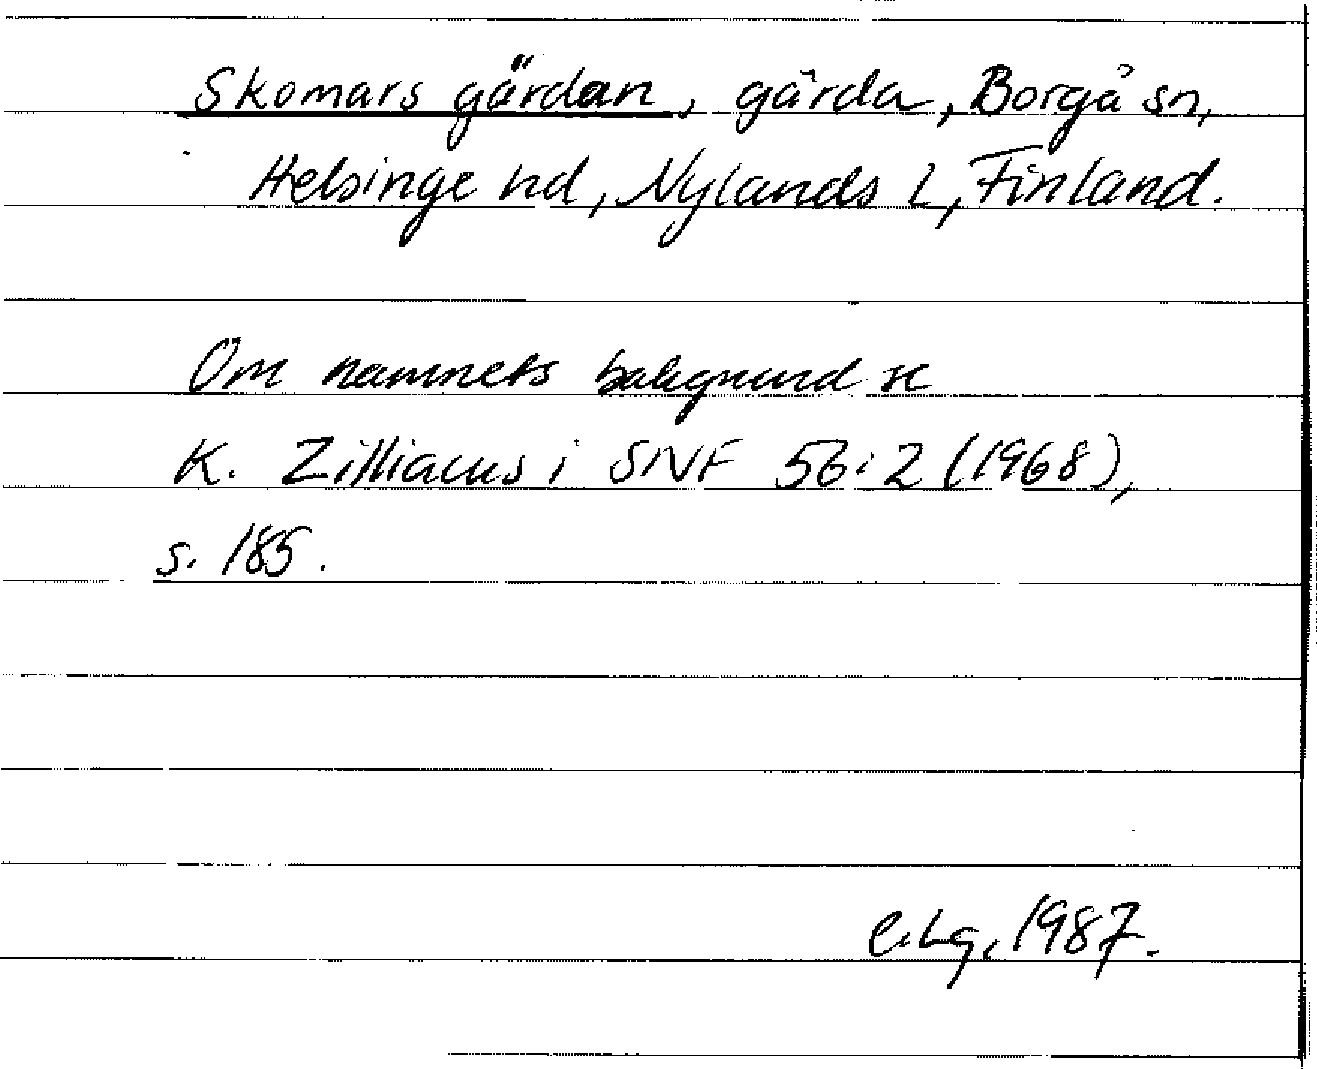 Skomars gärdan, gärda, Borgå sn,
Helsinge hd, Nylands l, Finland.
Om namnets bakgrund se
K. Zilliacus i SNF 56:2 (1968),
s. 185.
C.Lg, 1987.